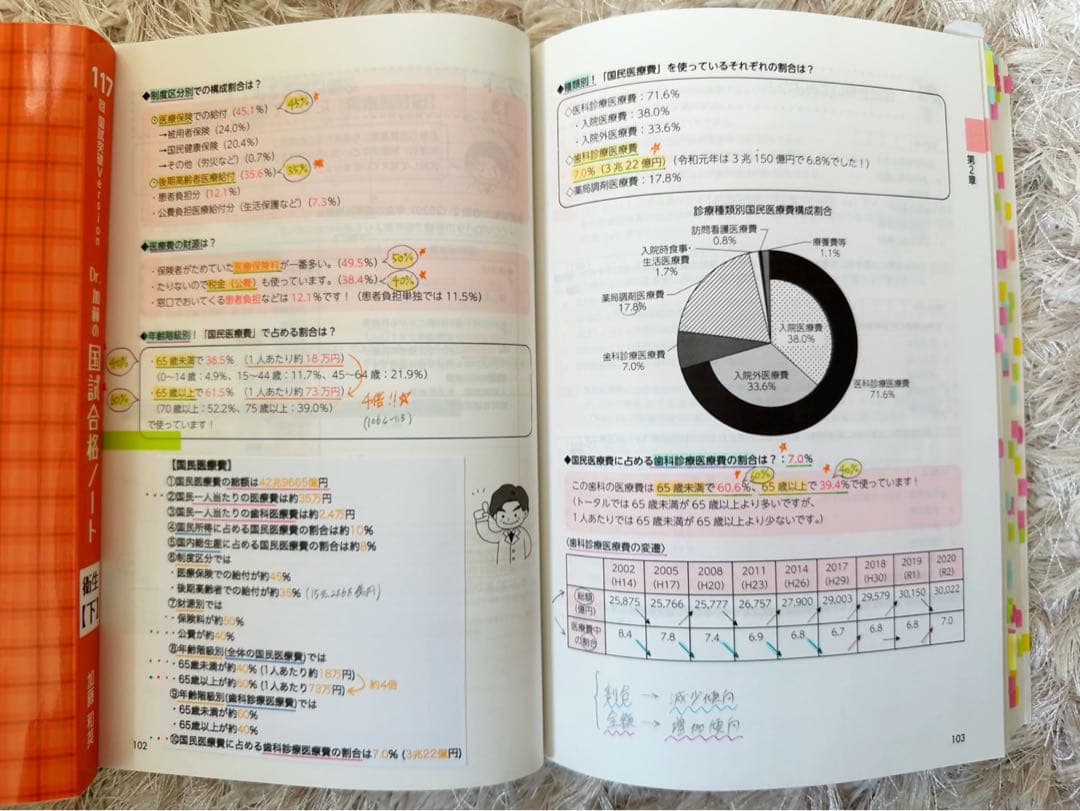 117回 国試突破Version Dr.加藤の国試合格ノート
衛生【下】
◆制度区分別での構成割合は?
◇医療保険での給付(45.1%) 45%
→被用者保険(24.0%)
→国民健康保険(20.4%)
→その他(労災など)(0.7%)
◇後期高齢者医療給付(35.6%) 35%
・患者負担分(12.1%)
・公費負担医療給付分(生活保護など)(7.3%)
◆医療費の財源は?
・保険者がためていた医療保険料が一番多い。(49.5%) 50%
・たりないので税金(公費)も使っています。(38.4%) 40%
・窓口でおいてくる患者負担などは12.1%です!(患者負担単独では11.5%)
◆年齢階級別!「国民医療費」で占める割合は?
40% ・65歳未満で38.5%(1人あたり約18万円)
(0〜14歳:4.9%、15〜44歳:11.7%、45〜64歳:21.9%)
60% ・65歳以上で61.5%(1人あたり約73万円)
4倍!!
(70歳以上:52.2%、75歳以上:39.0%)
で使っています!
【国民医療費】
①国民医療費の総額は42兆9665億円
②国民一人当たりの医療費は約35万円
③国民一人当たりの歯科医療費は約2.4万円
④国民所得に占める国民医療費の割合は約10%
⑤国内総生産に占める国民医療費の割合は約8%
⑥制度区分では
・医療保険での給付が約45%
・後期高齢者での給付が約35%
⑦財源別では
・保険料が約50%
・公費が約40%
⑧年齢階級別(全体の国民医療費)では
・65歳未満が約40%(1人あたり約18万円)
・65歳以上が約60%(1人あたり73万円) 約4倍
⑨年齢階級別(歯科診療医療費)では
・65歳未満が約60%
・65歳以上が約40%
⑩国民医療費に占める歯科診療医療費の割合は7.0%(3兆22億円)
102
第2章
◆種類別!「国民医療費」を使っているそれぞれの割合は?
◇医科診療医療費:71.6%
・入院医療費:38.0%
・入院外医療費:33.6%
◇歯科診療医療費
7.0%(3兆22億円)(令和元年は3兆150億円で6.8%でした!)
◇薬局調剤医療費:17.8%
診療種類別国民医療費構成割合
訪問看護医療費
0.8%
療養費等
1.1%
入院時食事・
生活医療費
1.7%
薬局調剤医療費
17.8%
歯科診療医療費
7.0%
入院医療費
38.0%
入院外医療費
33.6%
医科診療医療費
71.6%
◆国民医療費に占める歯科診療医療費の割合は?:7.0%
60% 40%
この歯科の医療費は65歳未満で60.6%、65歳以上で39.4%で使っています!
(トータルでは65歳未満が65歳以上より多いですが、
1人あたりでは65歳未満が65歳以上より少ないです。)
〈歯科診療医療費の変遷〉
2002 2005 2008 2011 2014 2017 2018 2019 2020
(H14) (H17) (H20) (H23) (H26) (H29) (H30) (R1) (R2)
総額(億円) 25,875 25,766 25,777 26,757 27,900 29,003 29,579 30,150 30,022
医療費中の割合 8.4 7.8 7.4 6.9 6.8 6.7 6.8 6.8 7.0
割合 → 減少傾向
金額 → 増加傾向
103